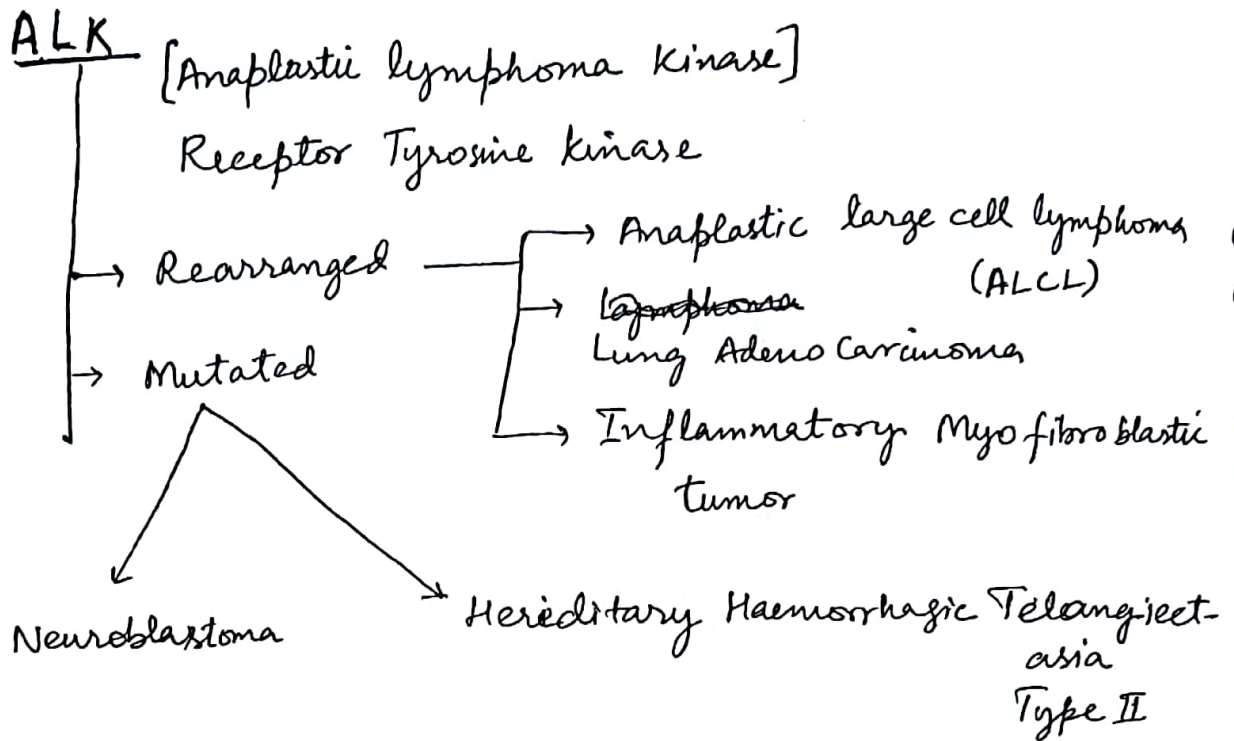 ALK
[Anaplastic lymphoma kinase]
Receptor Tyrosine kinase
Rearranged
Anaplastic large cell lymphoma
(ALCL)
Lymphoma
Lung Adeno Carcinoma
Mutated
Inflammatory Myofibroblastic
tumor
Neuroblastoma
Hereditary Haemorrhagic Telangiect-
asia
Type II